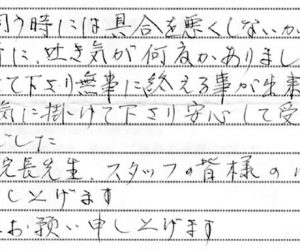 伺う時には具合を悪くしないか
に、吐き気が何度かありまし
て下さり無事に終える事が出来
気に掛けて下さり安心して受
でした
院長先生、スタッフの皆様の
し上げます
お願い申し上げます